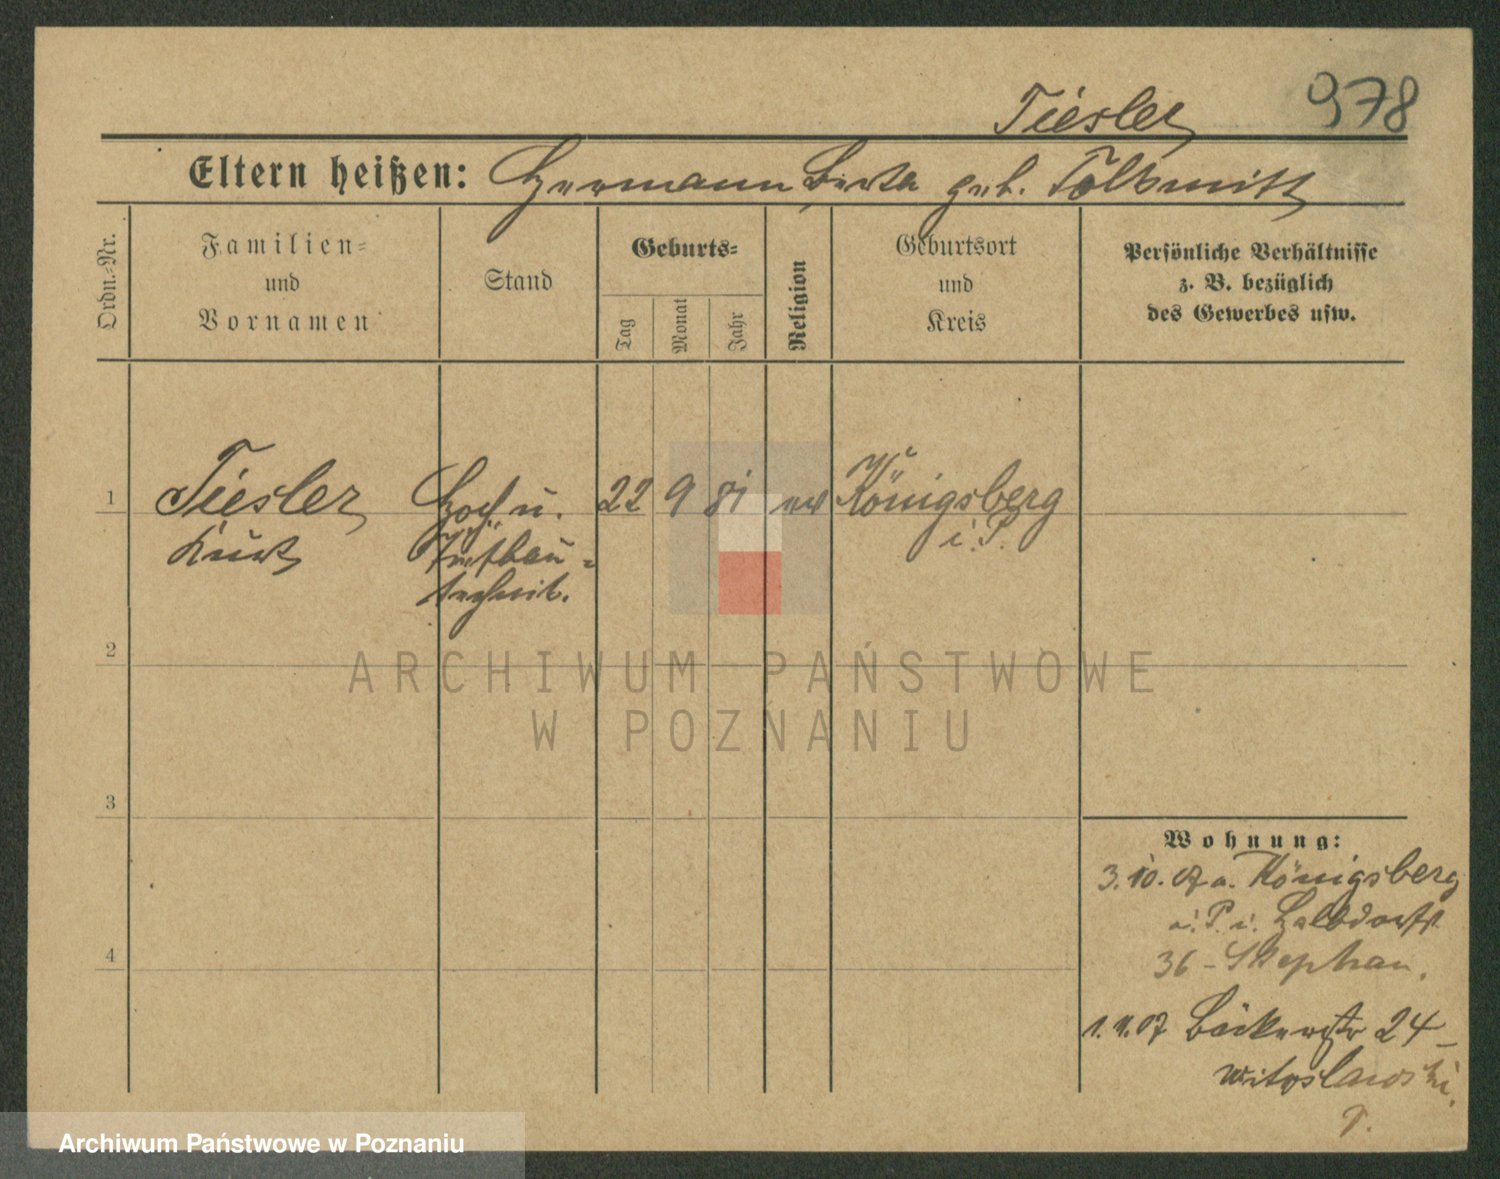 Tiesler 978
Eltern heißen: Hermann Berta geb. Tolkmitt
Ordn.-Nr.
Familien-
und
Vornamen
Stand
Geburts-
Tag
Monat
Jahr
Religion
Geburtsort
und
Kreis
Persönliche Verhältnisse
z. B. bezüglich
des Gewerbes usw.
1 Tiesler Hoch u. 22 9 81 ev Königsberg
Kurt Tiefbau- i. P.
technik.
2
ARCHIWUM PAŃSTWOWE
W POZNANIU
3
Wohnung:
3.10.07 a. Königsberg
i. P. i. Halbdorfstr
4
36 - Stephan.
1.11.07 Bäckerstr 24 -
Witoslawski.
Archiwum Państwowe w Poznaniu